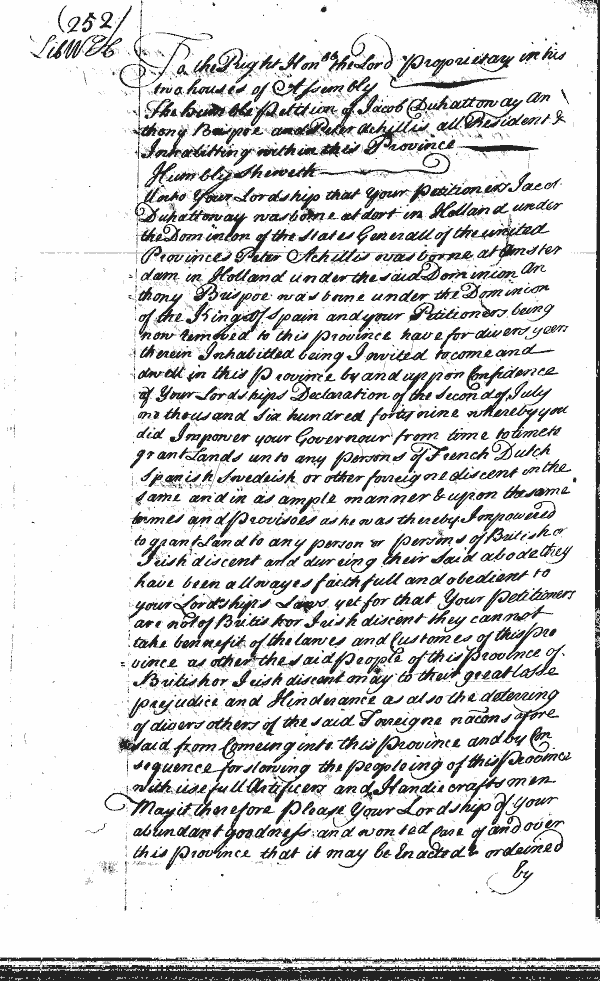 (252)
Lib W H
To the Right Hon ble the Lord Proprietary in his
two houses of Assembly
The humble Petition of Jacob Duhattoway An
thony Brispoe and Peter Achillis all Resident &
Inhabitting within this Province
Humbly Sheweth
Unto Your Lordship that Your Petitioners Jacob
Duhattoway was borne at dort in Holland under
the Dominion of the States Generall of the united
Provinces Peter Achillis was borne at Amster
dam in Holland under the said Dominion An
thony Brispoe was borne under the Dominion
of the King of Spain and your Petitioners being
now removed to this Province have for divers years
therein Inhabitted being Invited to come and
dwell in this Province by and uppon Confidence
of Your Lordships Declaration of the second of July
one thousand six hundred forty nine whereby you
did Impower your Governour from time to time to
grant Lands unto any Persons of French Dutch
Spanish Swedeish or other forreigne discent on the
same and in as ample manner & upon the same
termes and Provisoes as he was thereby Impowered
to grant Land to any person or Persons of British or
Irish discent and dureing their said abode they
have been allwayes faithfull and obedient to
your Lordships Laws yet for that Your Petitioners
are not of British or Irish discent they cannot
take bennefit of the lawes and Customes of this Pro
vince as other the said People of this Province of
British or Irish discent may to their great losse
prejudice and Hinderance as also the deterring
of divers others of the said Foreigne nacons afore
said from Comeing into this Province and by Con
sequence forslowing the peopleing of this Province
with usefull Artificers and Handiecrafts men
May it therefore Please Your Lordship of your
abundant goodness and wonted Care of and over
this Province that it may be Enacted & ordeined
by